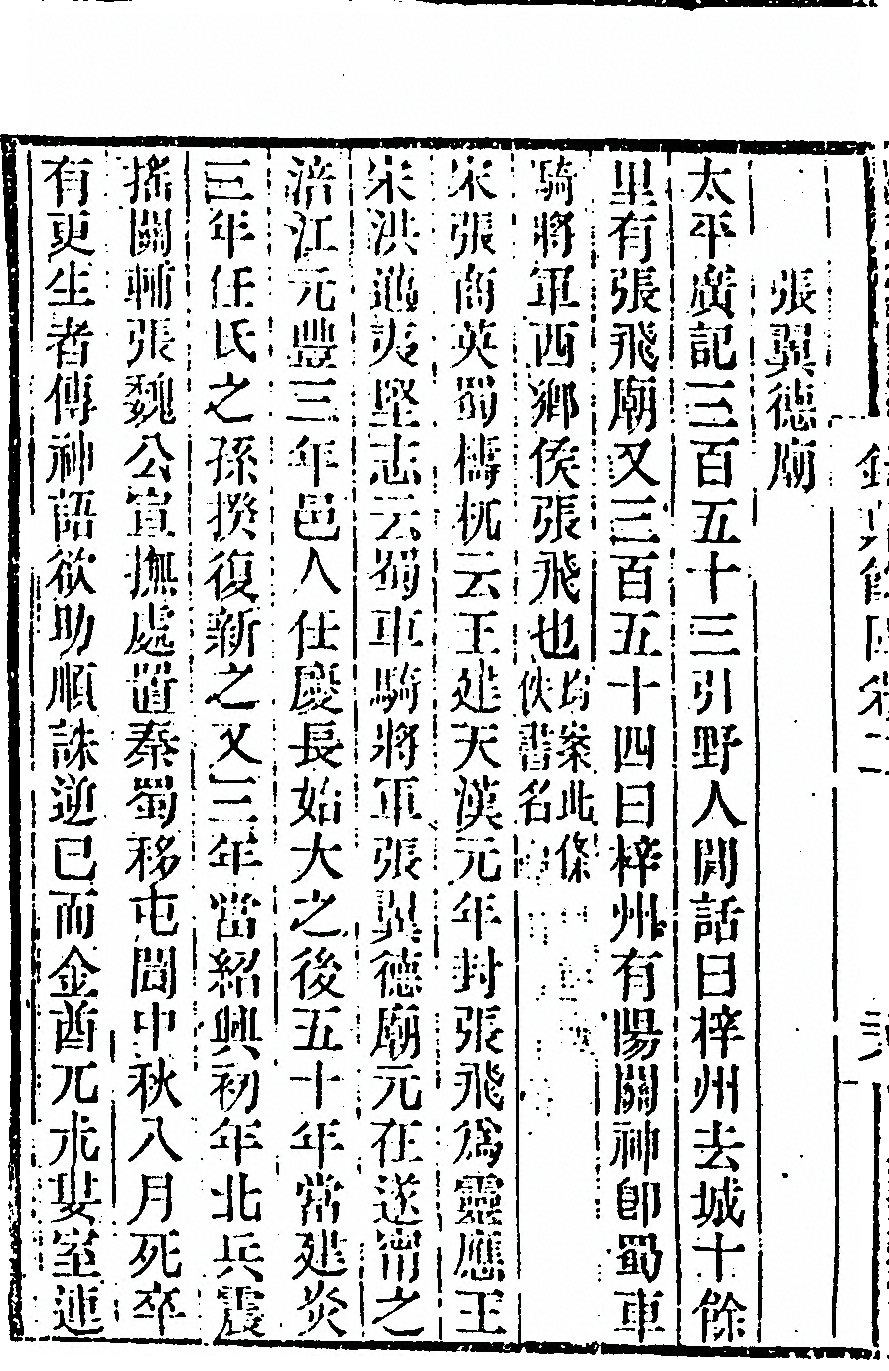 張翼德廟
太平廣記三百五十三引野人閒話曰梓州去城十餘
里有張飛廟又三百五十四曰梓州有陽關神卽蜀車
騎將軍西鄉侯張飛也均案此條佚書名
宋張商英蜀檮杌云王建天漢元年封張飛爲靈應王
宋洪邁夷堅志云蜀車騎將軍張翼德廟元在遂甯之
涪江元豐三年邑人任慶長始大之後五十年當建炎
三年任氏之孫揆復新之又三年當紹興初年北兵震
搖關輔張魏公宣撫處置秦蜀移屯閬中秋八月死卒
有更生者傳神語欲助順誅逆已而金酋兀朮婁室連